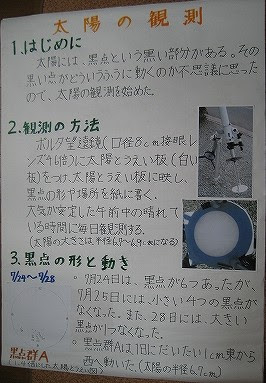 太陽の観測
1.はじめに
太陽には、黒点という黒い部分がある。その
黒い点がどういうふうに動くのか不思議に思った
ので、太陽の観測を始めた。
2.観測の方法
ポルタ望遠鏡(口径8cm接眼レ
ンズ46倍)に太陽とうえい板(白い
板)をつけ、太陽とうえい板に映し、
黒点の形や場所を紙に書く。
大気が安定した午前中の晴れて
いる時間に毎日観測する。
(太陽の大きさは、半径6.7〜6.9cmになる)
3.黒点の形と動き
7/24〜7/28
。7月24日は、黒点が6つあったが、
7月25日には、小さい4つの黒点が
なくなった。また、28日には、大きい
黒点が1つなくなった。
。黒点群Aは、1日にだいたい1cm東から
西へ動いた。(太陽の半径6.7cm)
黒点群A